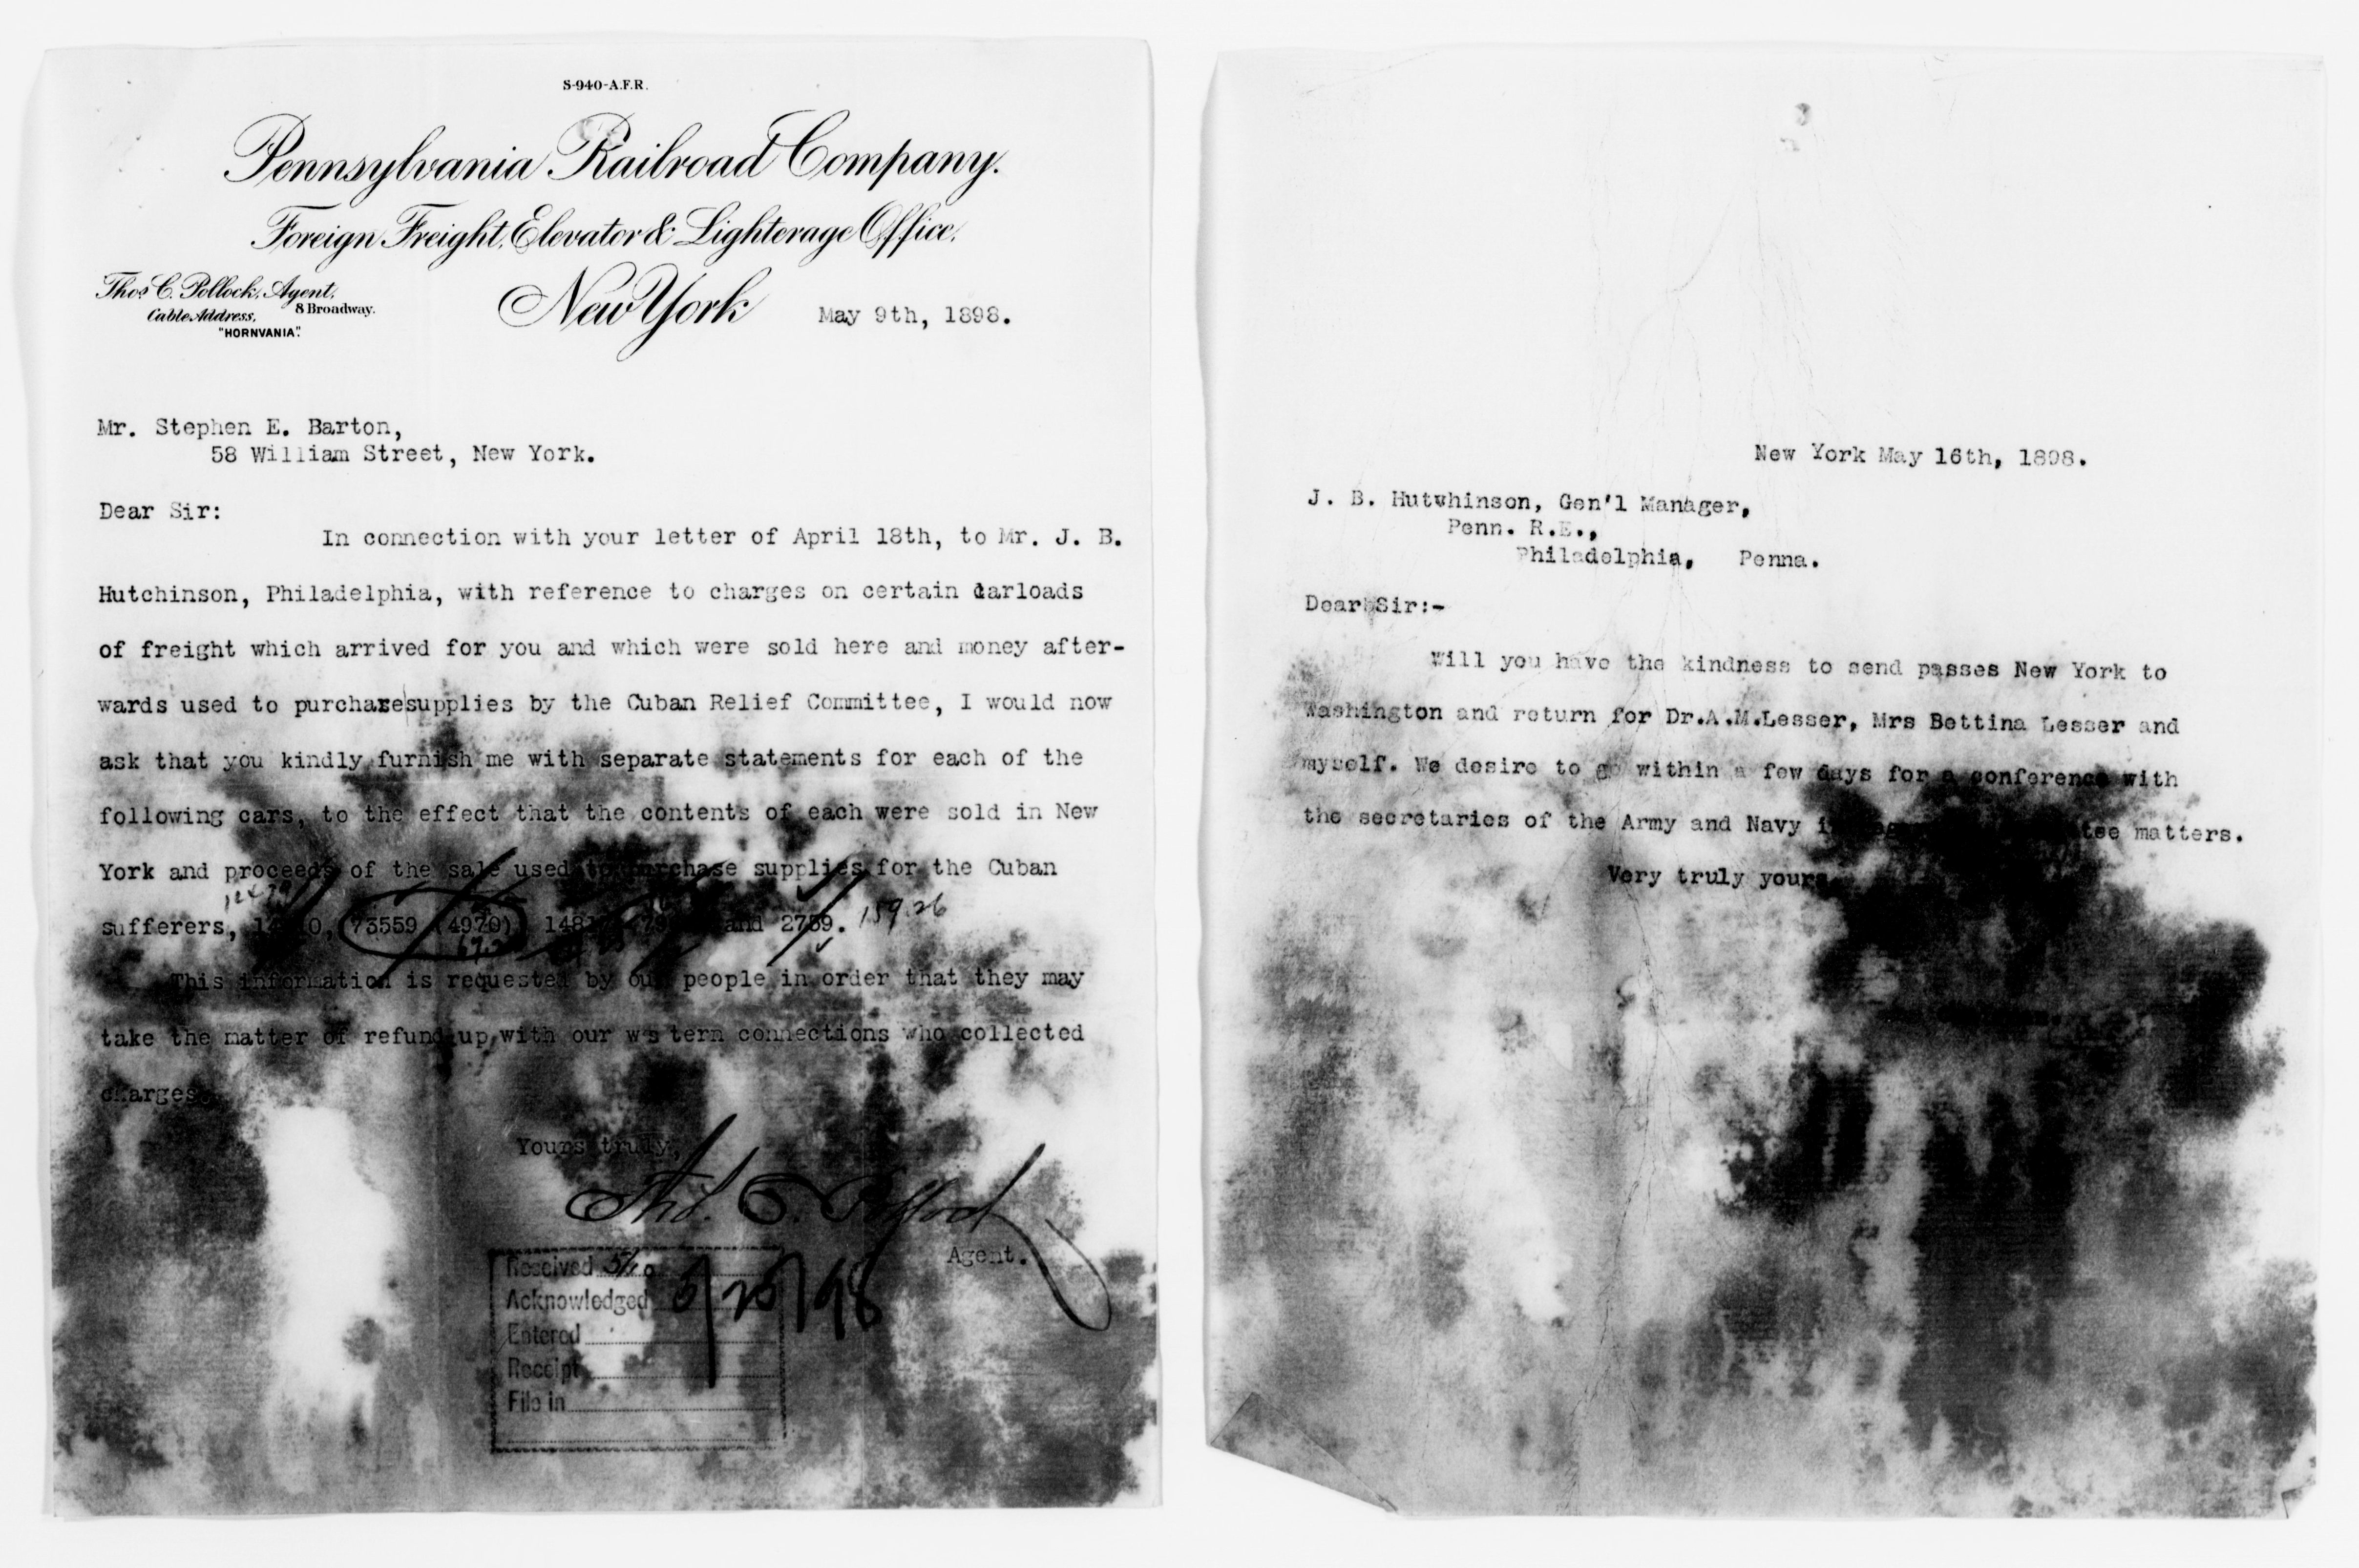 S-940-A.F.R.
Pennsylvania Railroad Company.
Foreign Freight, Elevator & Lighterage Office.
Thos C. Pollock, Agent,
8 Broadway.
Cable Address,
"HORNVANIA".
New York May 9th, 1898.
Mr. Stephen E. Barton,
58 William Street, New York.
Dear Sir:
In connection with your letter of April 18th, to Mr. J. B.
Hutchinson, Philadelphia, with reference to charges on certain carloads
of freight which arrived for you and which were sold here and money after-
wards used to purchasesupplies by the Cuban Relief Committee, I would now
ask that you kindly furnish me with separate statements for each of the
following cars, to the effect that the contents of each were sold in New
York and proceeds of the sale used to purchase supplies for the Cuban
sufferers, 73559 (4970) and 2759. 159.26
This information is requested by our people in order that they may
take the matter of refund up with our ws tern connections who collected
charges
Yours truly,
Thos. C. Pollock
Agent.
Received 5/10
Acknowledged 5/25/98
Entered
Receipt
File in
New York May 16th, 1898.
J. B. Hutwhinson, Gen'l Manager,
Penn. R.E.,
Philadelphia, Penna.
Dear Sir:-
Will you have the kindness to send passes New York to
Washington and return for Dr.A.M.Lesser, Mrs Bettina Lesser and
myself. We desire to go within a few days for a conference with
the secretaries of the Army and Navy matters.
Very truly yours